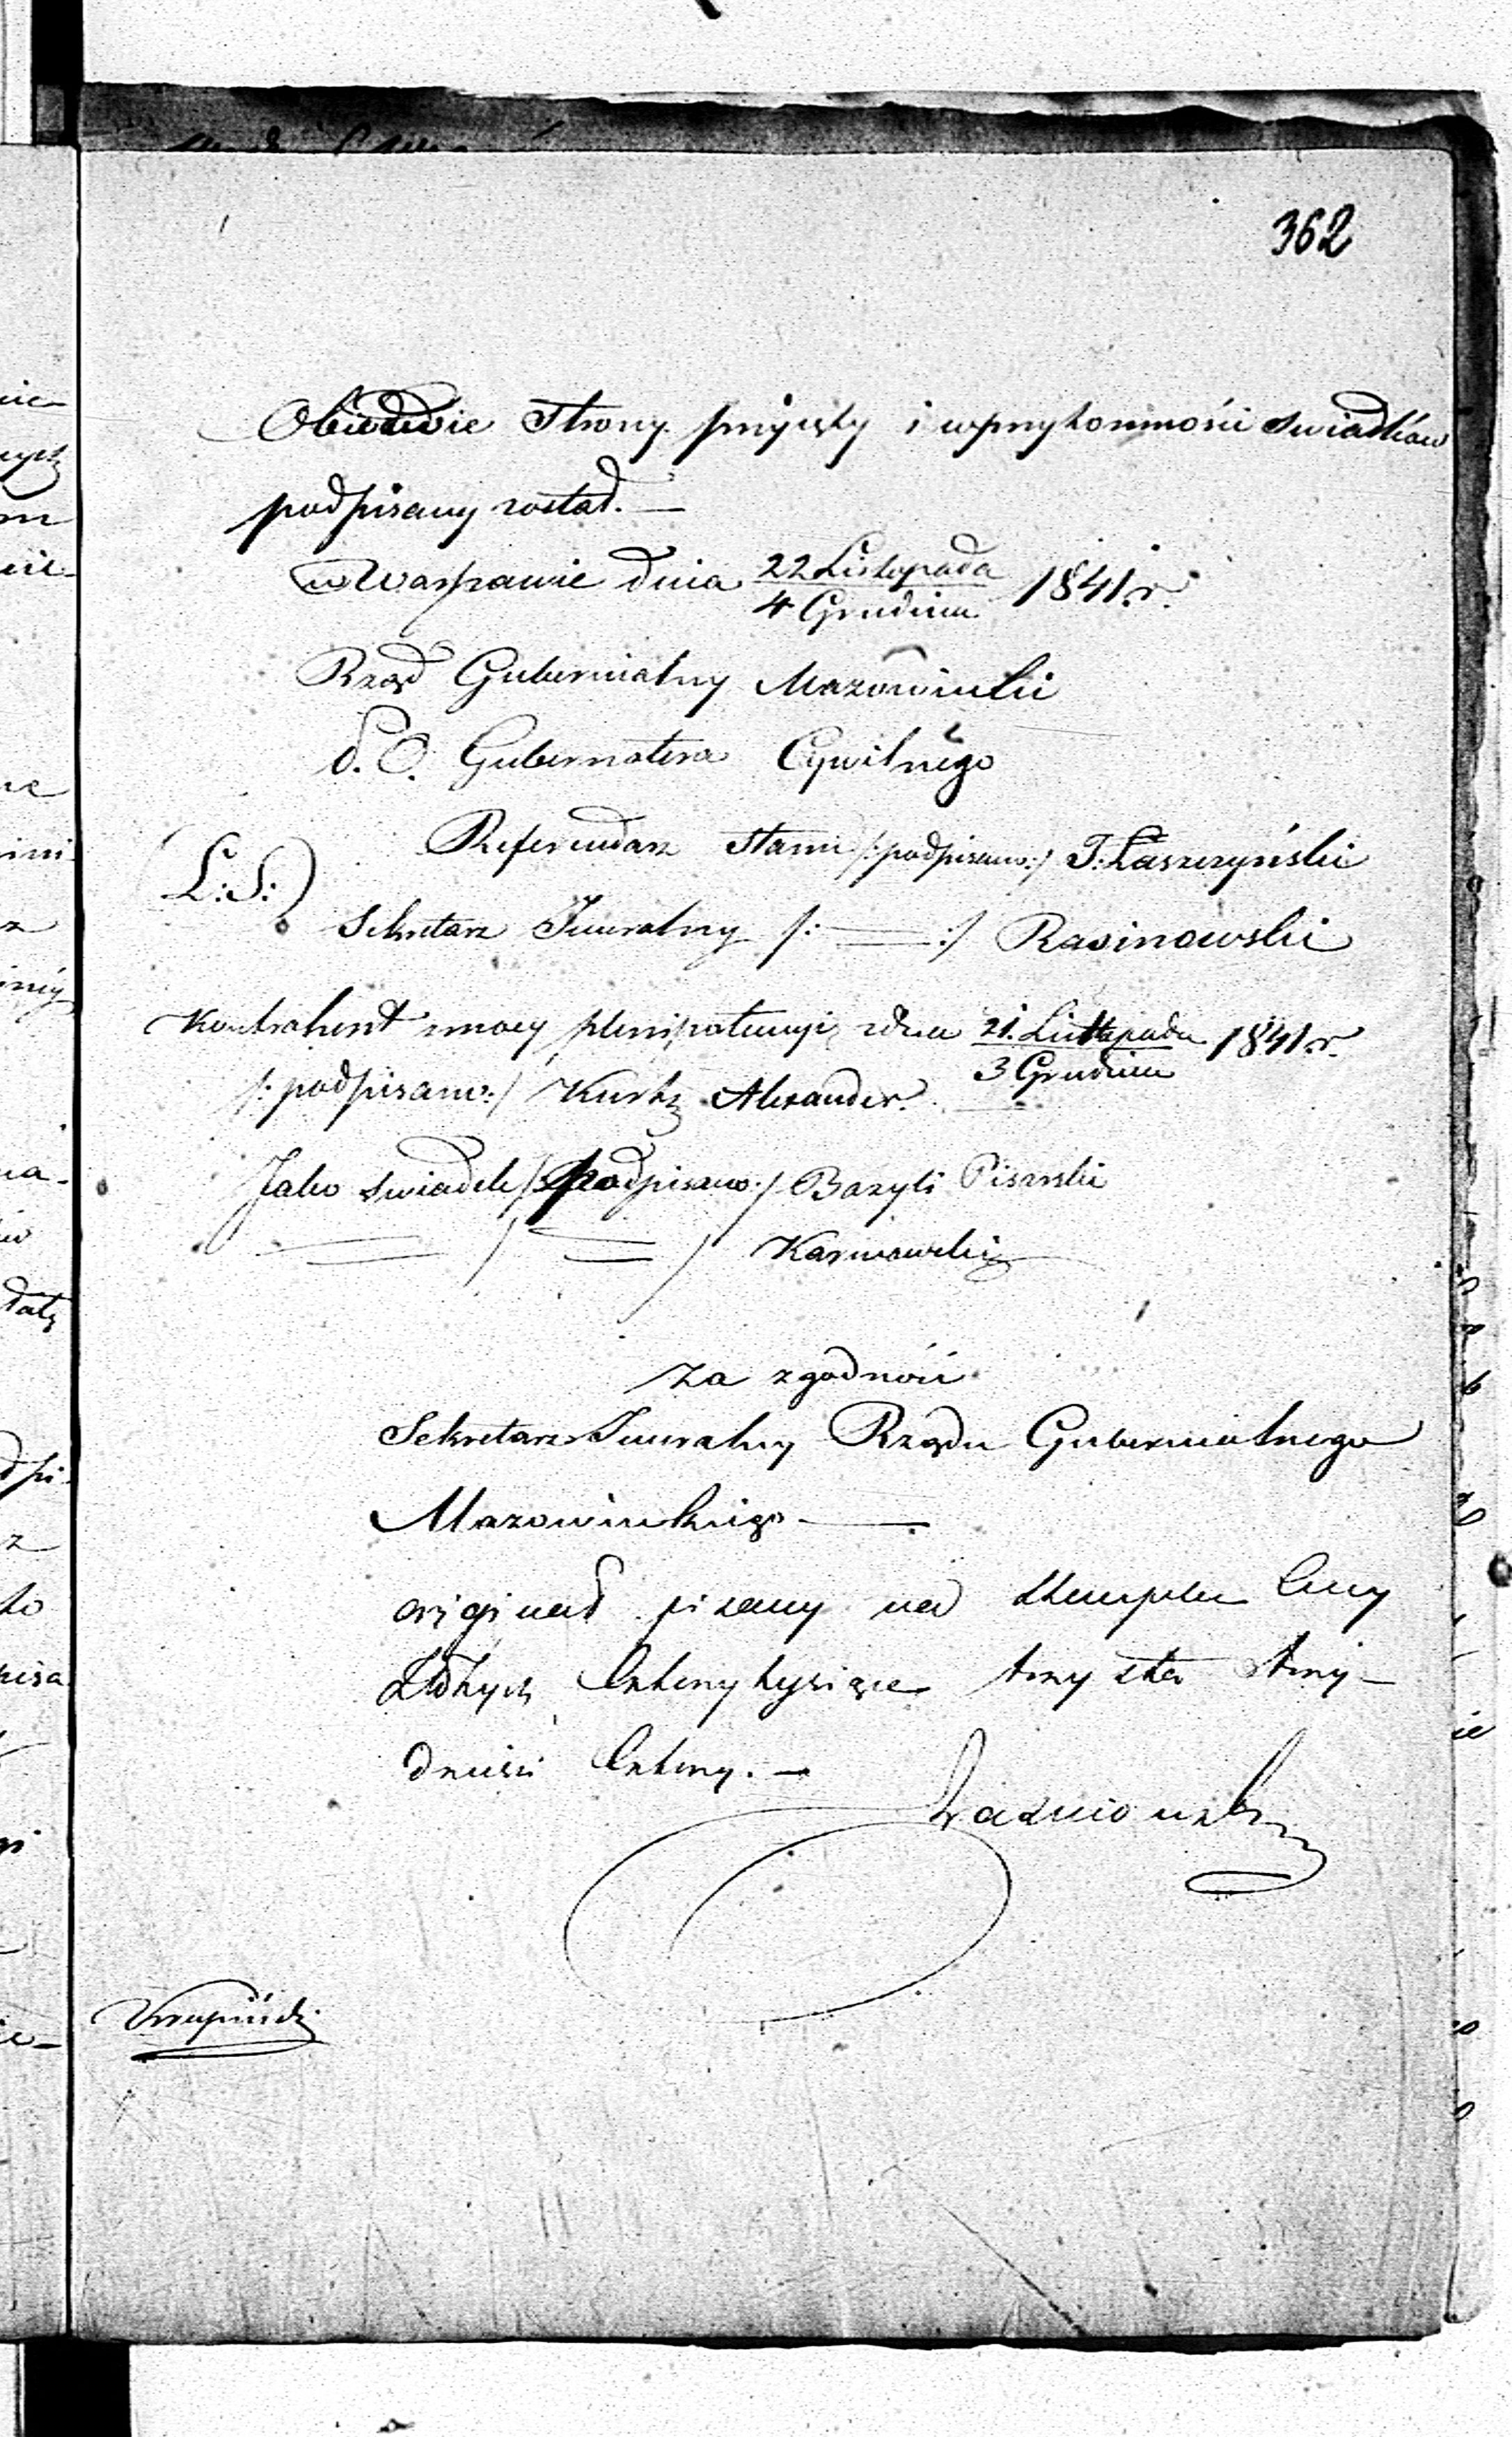 362
Obiedwie Strony przyięty i wprzytomności Swiadków
podpisany został. —
w Warszawie dnia 22 Listopada / 4 Grudnia 1841. r.
Rząd Gubernialny Mazowiecki
P. O. Gubernatora Cywilnego
Referendarz Stanu /:podpisano:/ J: Łaszczyński
(L:S:)
Sekretarz Jeneralny /: — :/ Rasinowski
Kontrahent z mocy plenipotencyi z dnia 21. Listopada / 3 Grudnia 1841. r.
/: podpisano:/ Kurtz Alexander.
Jako swiadek /:podpisano:/ Bazyli Pisarski
— / — / Karwowski
Za zgodność
Sekretarz Jeneralny Rządu Gubernialnego
Mazowieckiego —
oryginał pisany na stemplu Ceny
Złotych Cztery tysiące trzy sta trzy-
dzieści Cztery. —